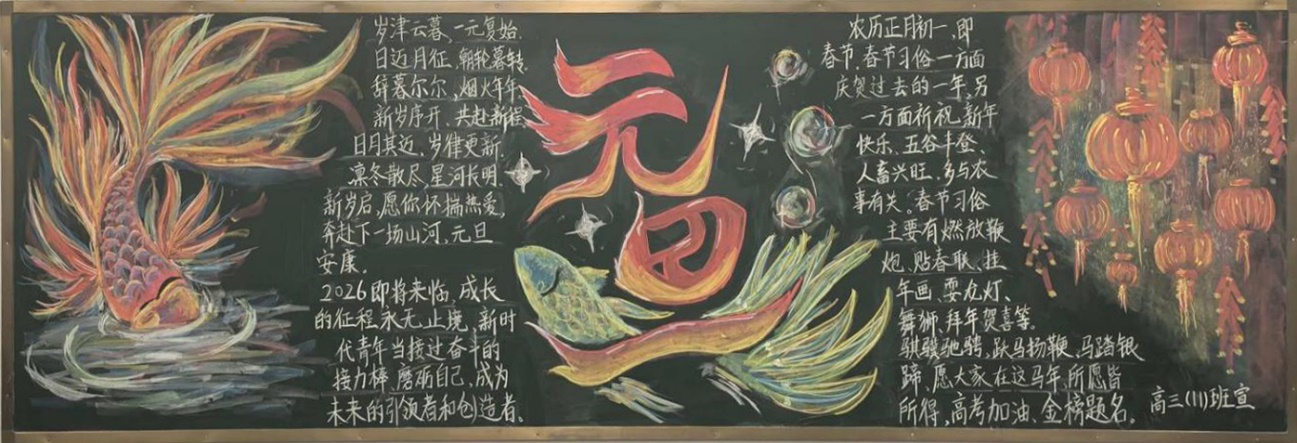 岁津云暮、一元复始.
日近月征,朝轮暮转.
辞暮尔尔,烟火年年,
新岁序开,共赴新程.
日月其迈,岁律更新.
凛冬散尽,星河长明.
新岁启,愿你怀揣热爱,
奔赴下一场山河,元旦
安康.
2026即将来临,成长
的征程永无止境,新时
代青年当接过奋斗的
接力棒,磨砺自己,成为
未来的引领者和创造者.
元旦
农历正月初一,即
春节,春节习俗一方面
庆贺过去的一年,另
一方面祈祝新年
快乐、五谷丰登、
人畜兴旺,多与农
事有关。春节习俗
主要有燃放鞭
炮、贴春联、挂
年画、耍龙灯、
舞狮、拜年贺喜等。
骐骏驰骋,跃马扬鞭,马踏银
蹄,愿大家在这马年,所愿皆
所得,高考加油、金榜题名.
高三(11)班宣